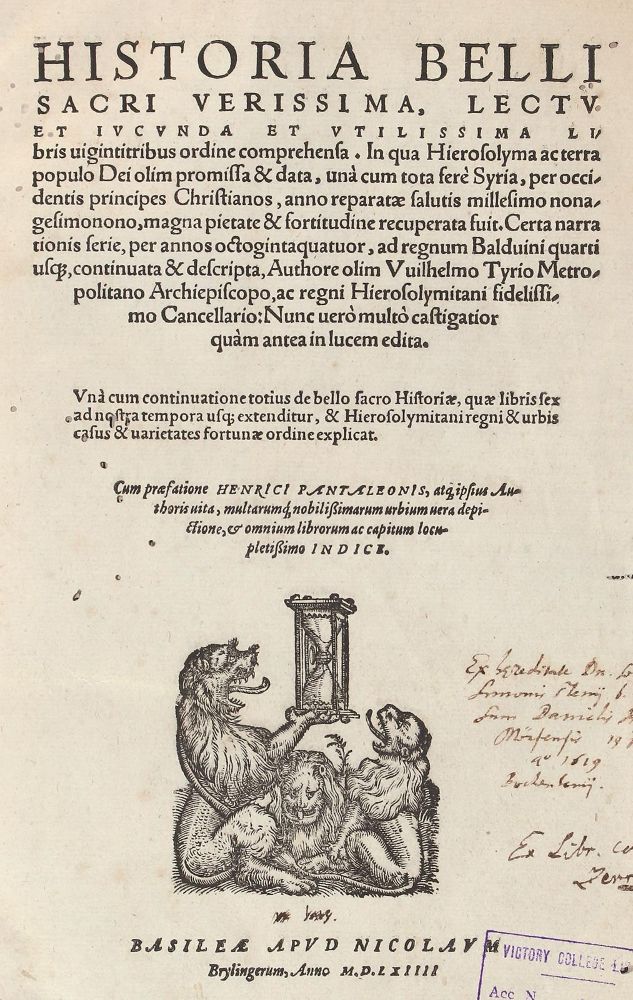 HISTORIA BELLI
SACRI VERISSIMA, LECTV
ET IVCVNDA ET VTILISSIMA LI/
bris uigintitribus ordine comprehensa. In qua Hierosolyma ac terra
populo Dei olim promissa & data, unà cum tota ferè Syria, per occi/
dentis principes Christianos, anno reparatæ salutis millesimo nona/
gesimonono, magna pietate & fortitudine recuperata fuit. Certa narra
tionis serie, per annos octogintaquatuor, ad regnum Balduini quarti
usq;, continuata & descripta, Authore olim Vuilhelmo Tyrio Metro/
politano Archiepiscopo, ac regni Hierosolymitani fidelissi/
mo Cancellario: Nunc uerò multò castigatior
quàm antea in lucem edita.
Vnà cum continuatione totius de bello sacro Historiæ, quæ libris sex
ad nostra tempora usq; extenditur, & Hierosolymitani regni & urbis
casus & uarietates fortunæ ordine explicat.
Cum præfatione HENRICI PANTALEONIS, atq; ipsius Au-
thoris uita, multarumq́; nobilissimarum urbium uera depi-
ctione, & omnium librorum ac capitum locu-
pletissimo INDICE.
Ex hereditate Dn.
Simonis
Danielis
1619
Ex Libr.
BASILEÆ APVD NICOLAVM
Brylingerum, Anno M.D.LXIIII
VICTORY COLLEGE LI
Acc. N